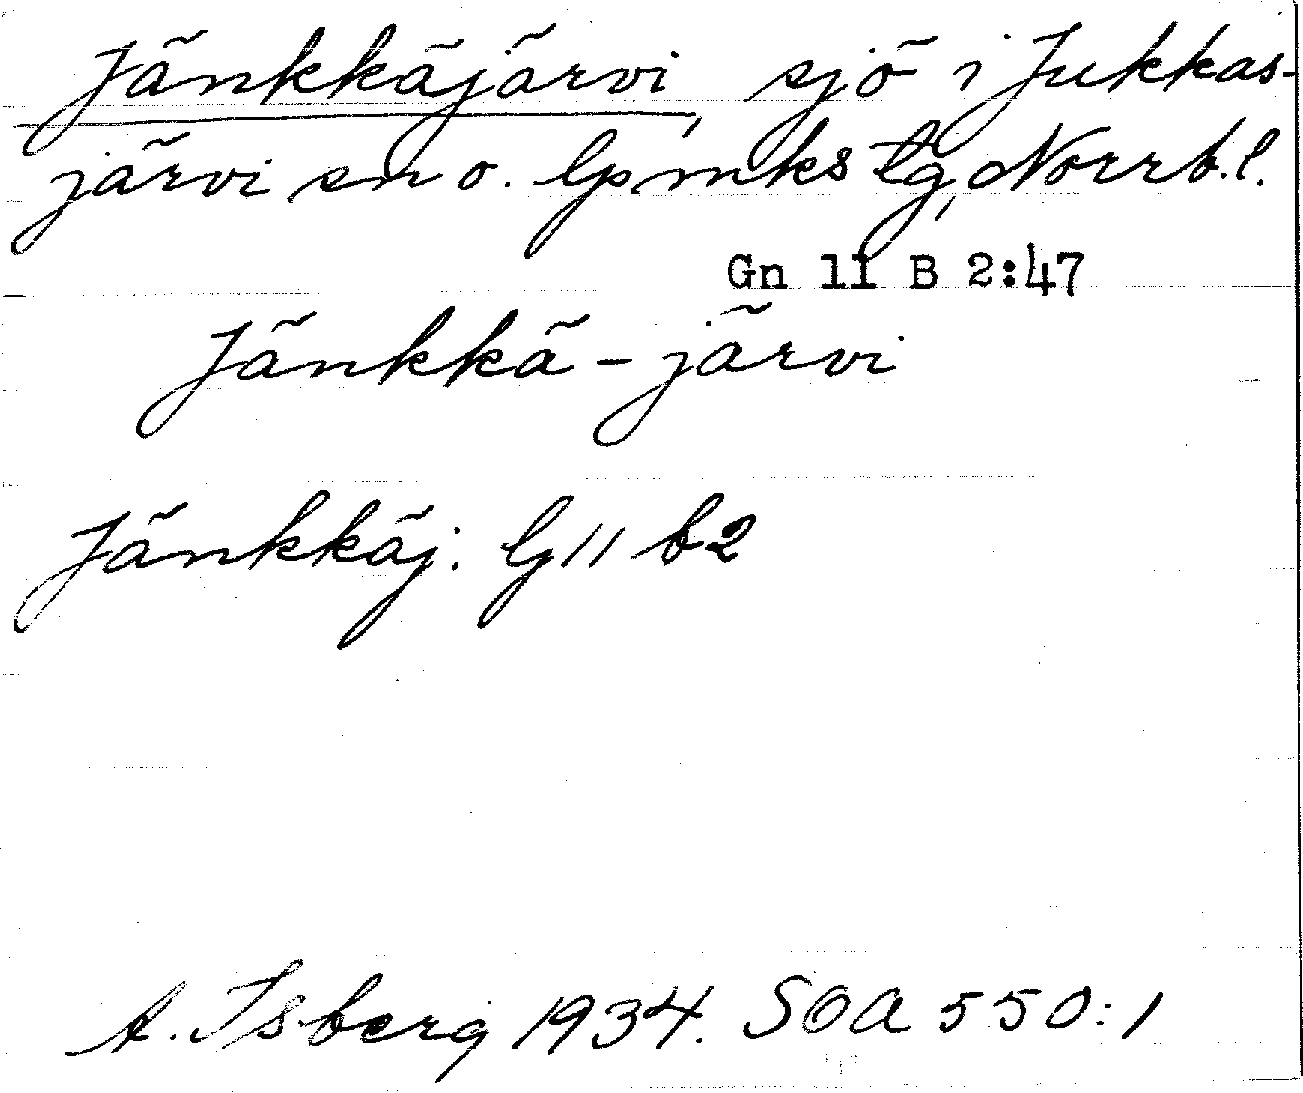 Jänkkäjärvi, sjö i Jukkas-
järvi sn o. lpmks tg, Norrb.l.
Gn 11 B 2:47
Jänkkä-järvi
Jänkkäj. G 11 b2
A. Isberg 1934. SOA 550:1